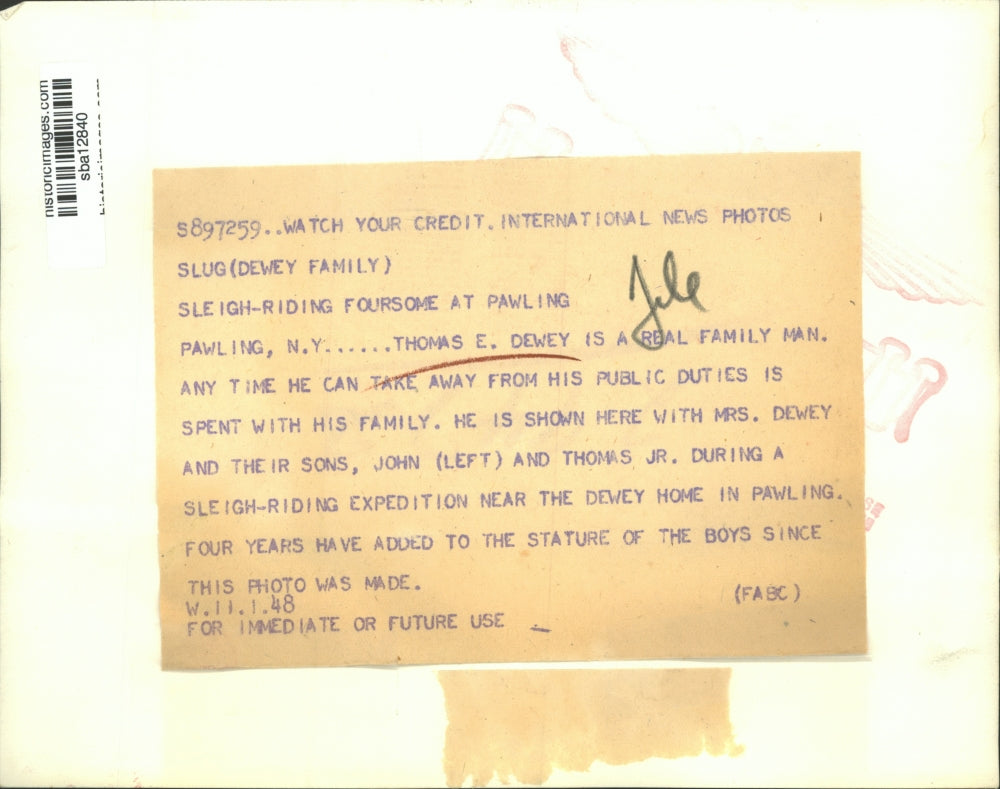 historicimages.com
sba12840
S897259..WATCH YOUR CREDIT.INTERNATIONAL NEWS PHOTOS
SLUG(DEWEY FAMILY)
SLEIGH-RIDING FOURSOME AT PAWLING
File
PAWLING, N.Y......THOMAS E. DEWEY IS A REAL FAMILY MAN.
ANY TIME HE CAN TAKE AWAY FROM HIS PUBLIC DUTIES IS
SPENT WITH HIS FAMILY. HE IS SHOWN HERE WITH MRS. DEWEY
AND THEIR SONS, JOHN (LEFT) AND THOMAS JR. DURING A
SLEIGH-RIDING EXPEDITION NEAR THE DEWEY HOME IN PAWLING.
FOUR YEARS HAVE ADDED TO THE STATURE OF THE BOYS SINCE
THIS PHOTO WAS MADE.
(FABC)
W.11.1.48
FOR IMMEDIATE OR FUTURE USE